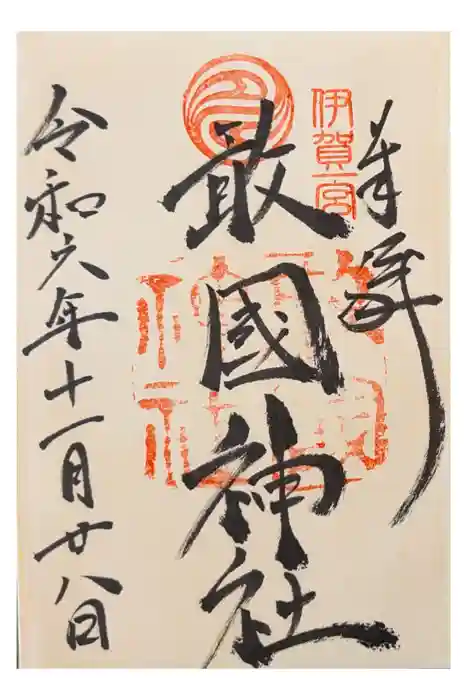 奉拝
伊賀一宮
敢國神社
令和六年十一月廿八日